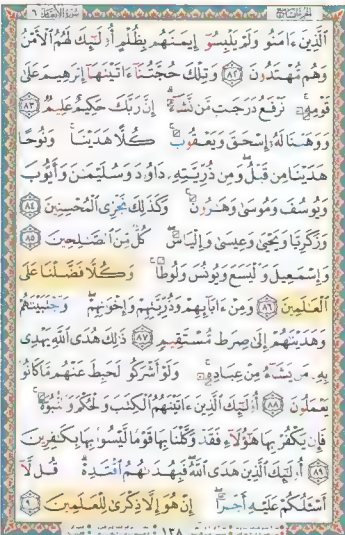 سورة الأنعام ٦
الَّذِينَ ءَامَنُو وَلَمْ يَلْبِسُو إِيمَنَهُم بِظُلْمٍ أُوْلَٰئِكَ لَهُمُ الْأَمْنُ
وَهُم مُّهْتَدُونَ ﴿٨٢﴾ وَتِلْكَ حُجَّتُنَا ءَاتَيْنَهَا إِبْرَهِيمَ عَلَىٰ
قَوْمِهِ نَرْفَعُ دَرَجَتٍ مَّن نَّشَاءُ إِنَّ رَبَّكَ حَكِيمٌ عَلِيمٌ ﴿٨٣﴾
وَوَهَبْنَا لَهُ إِسْحَقَ وَيَعْقُوبَ كُلًّا هَدَيْنَا وَنُوحًا
هَدَيْنَا مِن قَبْلُ وَمِن ذُرِّيَّتِهِ دَاوُدَ وَسُلَيْمَنَ وَأَيُّوبَ
وَيُوسُفَ وَمُوسَىٰ وَهَرُونَ وَكَذَلِكَ نَجْزِي الْمُحْسِنِينَ ﴿٨٤﴾
وَزَكَرِيَّا وَيَحْيَىٰ وَعِيسَىٰ وَإِلْيَاسَ كُلٌّ مِّنَ الصَّلِحِينَ ﴿٨٥﴾
وَإِسْمَعِيلَ وَلْيَسَعَ وَيُونُسَ وَلُوطًا وَكُلًّا فَضَّلْنَا عَلَى
الْعَلَمِينَ ﴿٨٦﴾ وَمِنْ ءَابَائِهِمْ وَذُرِّيَّتِهِمْ وَإِخْوَنِهِمْ وَجْتَبَيْنَهُمْ
وَهَدَيْنَهُمْ إِلَىٰ صِرَطٍ مُّسْتَقِيمٍ ﴿٨٧﴾ ذَلِكَ هُدَى اللَّهِ يَهْدِي
بِهِ مَن يَشَاءُ مِنْ عِبَادِهِ وَلَوْ أَشْرَكُو لَحَبِطَ عَنْهُم مَّا كَانُو
يَعْمَلُونَ ﴿٨٨﴾ أُوْلَٰئِكَ الَّذِينَ ءَاتَيْنَهُمُ الْكِتَبَ وَلْحُكْمَ وَنُّبُوَّةَ
فَإِن يَكْفُرْ بِهَا هَؤُلَاءِ فَقَدْ وَكَّلْنَا بِهَا قَوْمًا لَّيْسُو بِهَا بِكَفِرِينَ
﴿٨٩﴾ أُوْلَٰئِكَ الَّذِينَ هَدَى اللَّهُ فَبِهُدَىٰهُمُ اقْتَدِهْ قُل لَّا
أَسْـَٔلُكُمْ عَلَيْهِ أَجْرًا إِنْ هُوَ إِلَّا ذِكْرَىٰ لِلْعَلَمِينَ ﴿٩٠﴾
١٣٨